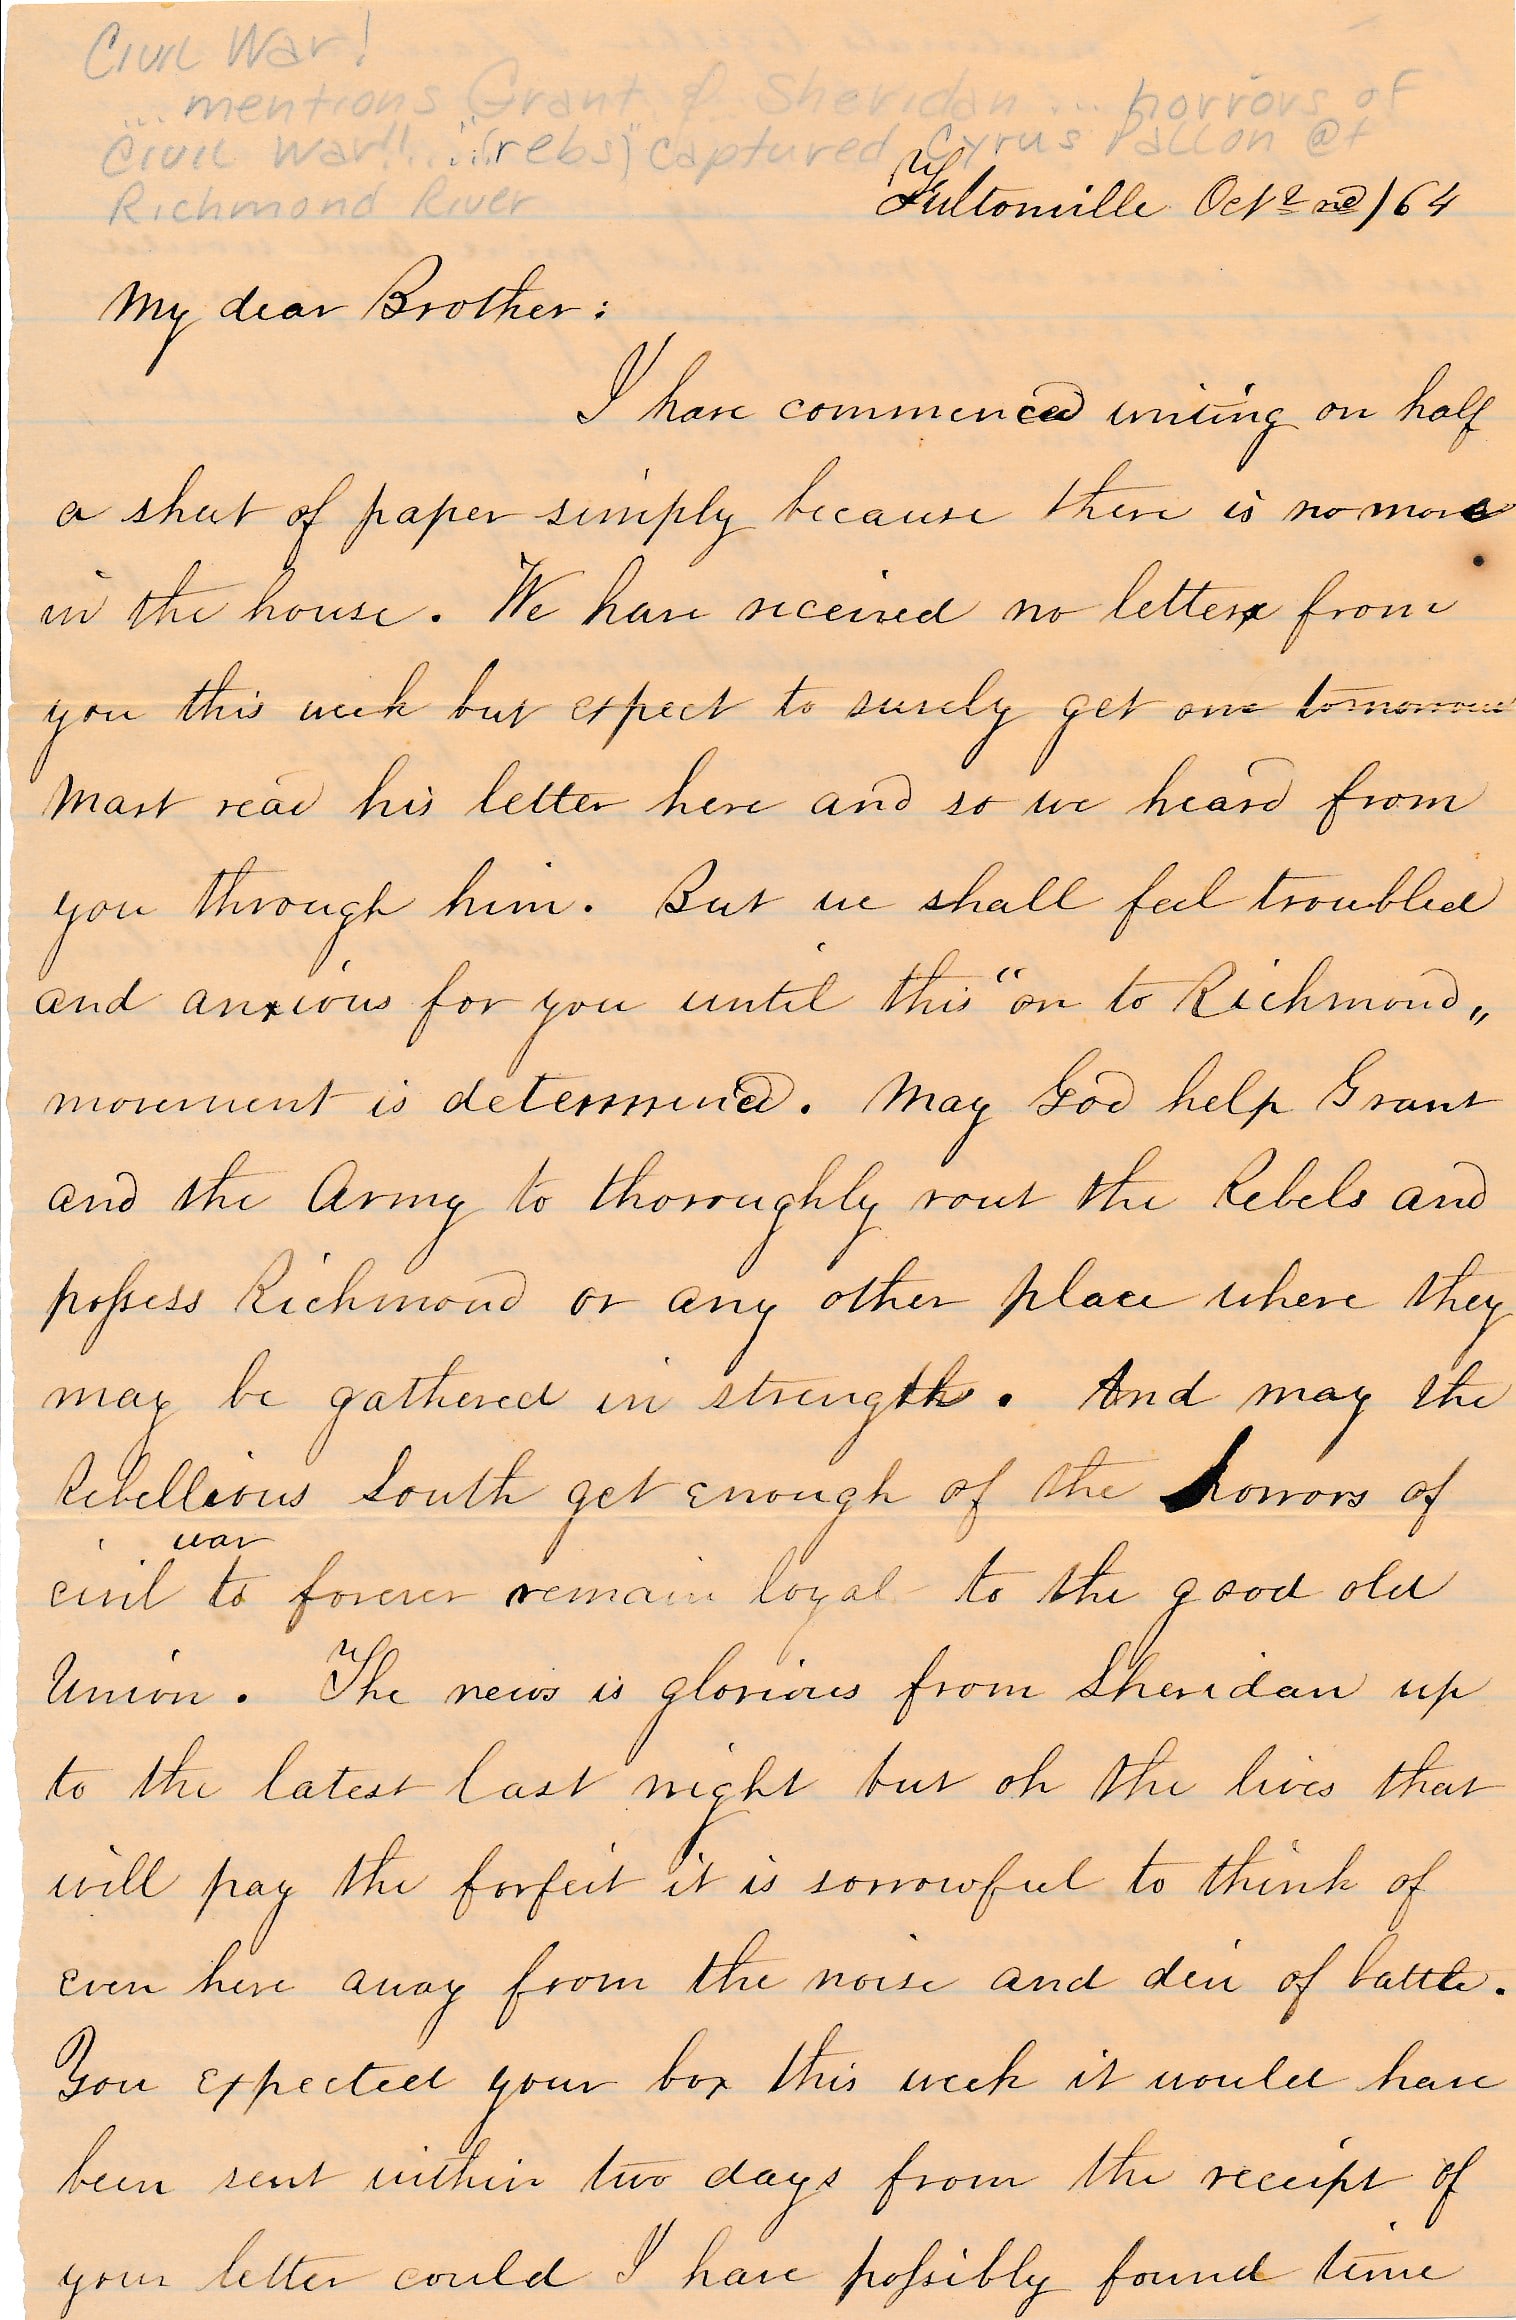 Civil War!
... mentions Grant & Sheridan ... horrors of
Civil War!! ... "(rebs)" captured Cyrus Fallon @t
Richmond River
Fultonville Oct 2nd /64
My dear Brother:
I have commenced writing on half
a sheet of paper simply because there is no more
in the house. We have received no letter from
you this week but expect to surely get one tomorrow
Mart read his letter here and so we heard from
you through him. But we shall feel troubled
and anxious for you until this "on to Richmond„
movement is determined. May God help Grant
and the Army to thoroughly rout the Rebels and
possess Richmond or any other place where they
may be gathered in strength. And may the
Rebellious South get enough of the horrors of
war
civil to forever remain loyal to the good old
Union. The news is glorious from Sheridan up
to the latest last night but oh the lives that
will pay the forfeit it is sorrowful to think of
even here away from the noise and din of battle.
You expected your box this week it would have
been sent within two days from the receipt of
your letter could I have possibly found time